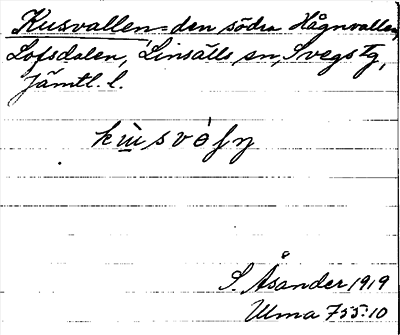 Kusvallen = den södra Hågnvallen,
Lofsdalen, Linsälls sn, Svegs tg,
Jämtl. l.
S. Åsander 1919
Ulma 755:10